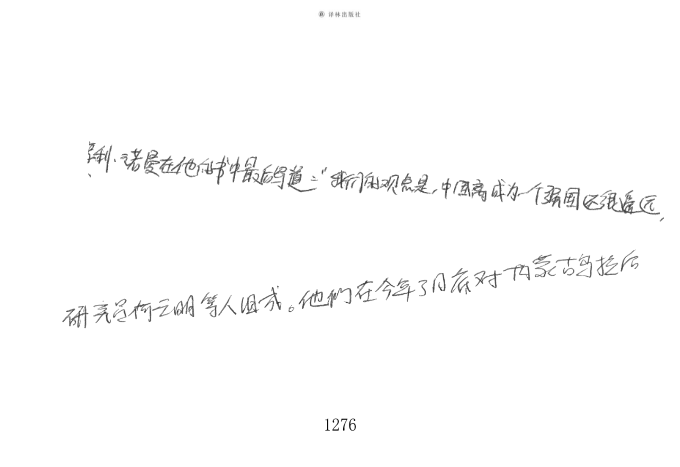 译林出版社
利·诺曼在他的书中最后写道:"我们的观点是,中国离成为一个强国还很遥远,
研究员何三明等人组成。他们在今年3月底对内蒙古乌拉后
1276